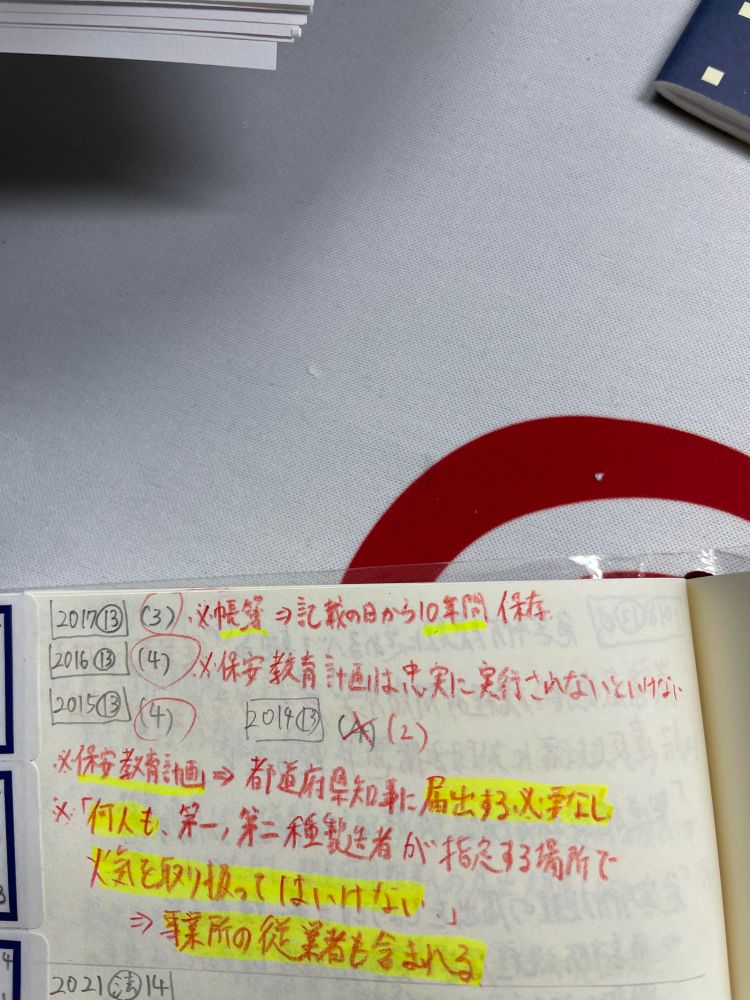 2017⑬ (3) ※帳簿⇒記載の日から10年間保存
2016⑬ (4) ※保安教育計画は忠実に実行されないといけない
2015⑬ (4) 2014⑬ (2)
※保安教育計画⇒都道府県知事に届出する必要なし
※「何人も、第一,第二種製造者が指定する場所で
火気を取り扱ってはいけない.」
⇒事業所の従業者も含まれる
2021㊋14